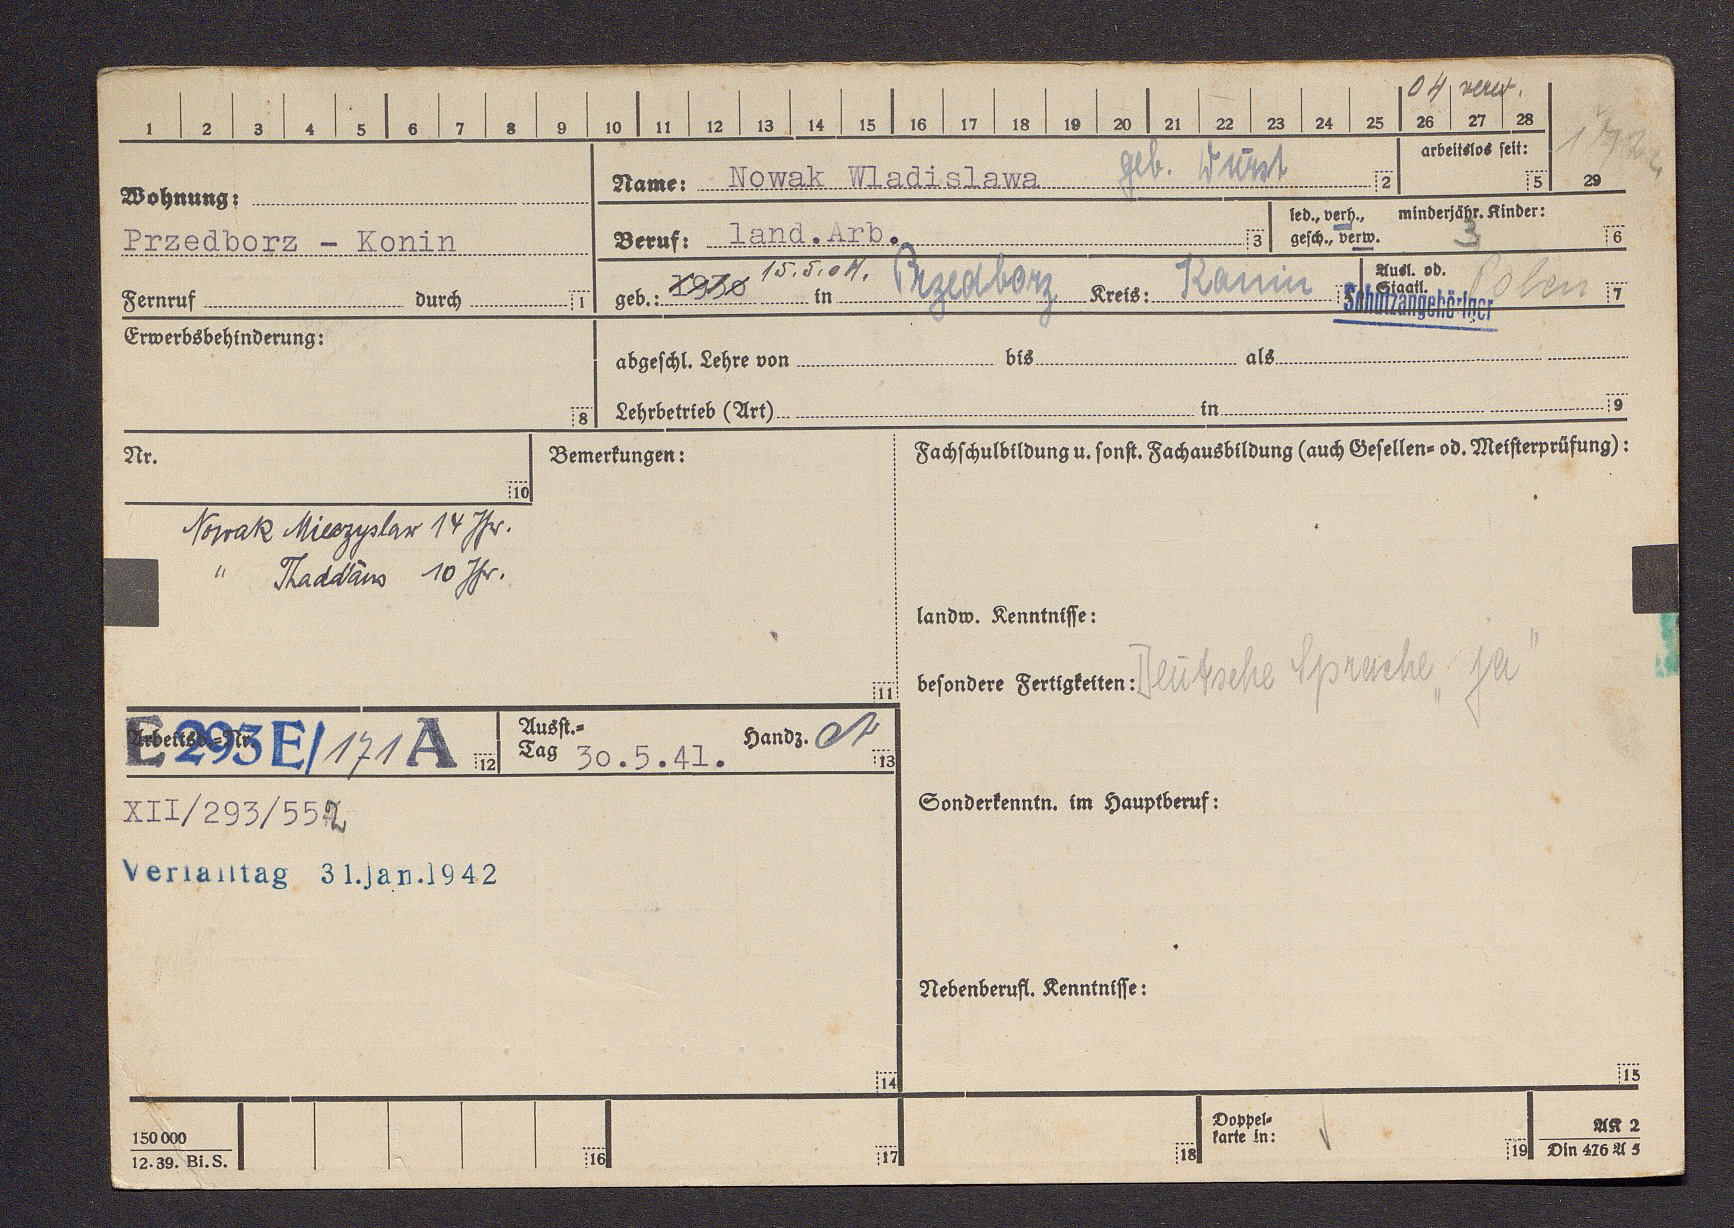 04 verw.
1 2 3 4 5 6 7 8 9 10 11 12 13 14 15 16 17 18 19 20 21 22 23 24 25 26 27 28
29
Wohnung:
Przedborz - Konin
Fernruf durch 1
Name: Nowak Wladislawa geb. Wurst 2
arbeitslos seit: 5
Beruf: land.Arb. 3
led., verh., minderjähr. Kinder:
gesch., verw. 3 6
geb.: 1930 15.5.04. in Przedborz Kreis: Konin
Ausl. od. Staatl. Polen 7
Schutzangehöriger
Erwerbsbehinderung:
8
abgeschl. Lehre von bis als
Lehrbetrieb (Art) in 9
Nr.
10
Bemerkungen:
Nowak Mieczyslaw 14 Jhr.
" Thaddäus 10 Jhr.
11
Fachschulbildung u. sonst. Fachausbildung (auch Gesellen- od. Meisterprüfung):
landw. Kenntnisse:
besondere Fertigkeiten: Deutsche Sprache „ja"
Arbeitsb.-Nr.
E 293 E/171 A 12
Ausst.-
Tag 30.5.41. Handz. 13
XII/293/552
Verfalltag 31.Jan.1942
14
Sonderkenntn. im Hauptberuf:
Nebenberufl. Kenntnisse:
15
150 000
12.39. Bi.S.
16
17
18
Doppel-
karte in:
19
AK 2
Din 476 A 5